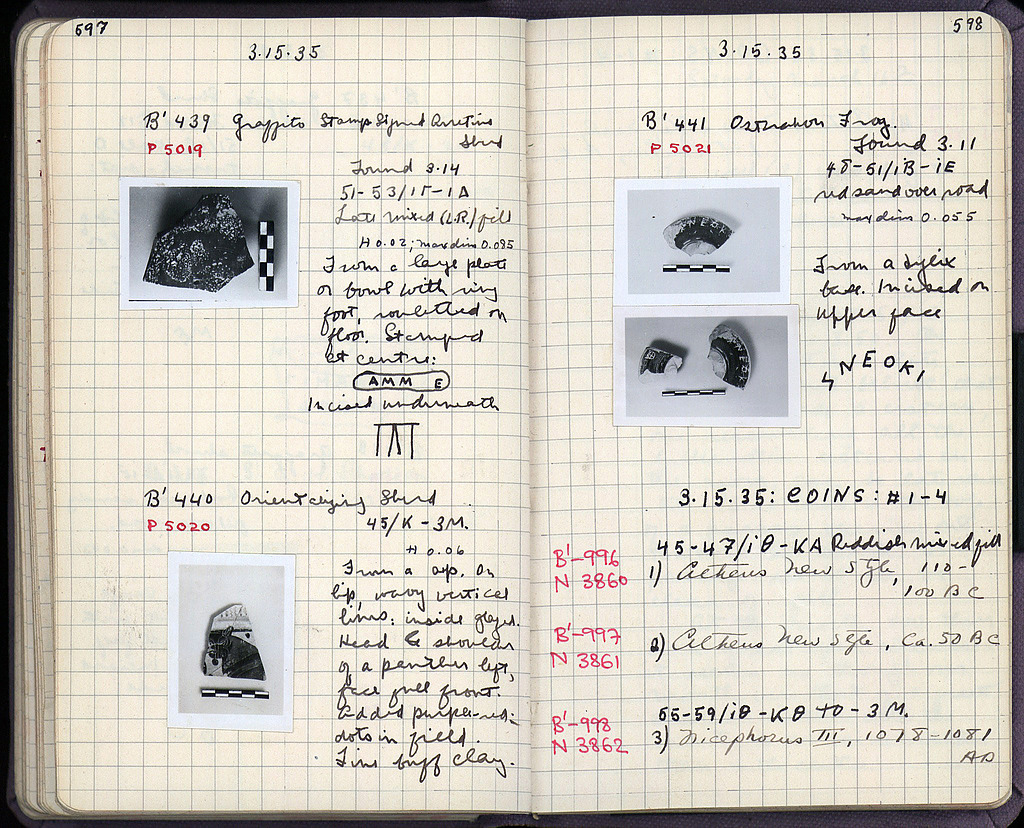 597
3.15.35
B' 439 Graffito Stamp Signed Arretine
Sherd
P 5019
Found 3.14
51-53/ΙΓ-ΙΔ
Late mixed (L.R.) fill
H 0.02; max dim 0.095
From a large plate
or bowl with ring
foot, rouletted on
floor. Stamped
at centre:
AMM E
Incised underneath
B' 440 Orientalizing Sherd
P 5020
45/K - 3M.
H 0.06
From a . On
lip, wavy vertical
lines: inside glazed.
Head & shoulder
of a panther left,
face full front.
Added purple-red:
dots in field.
Fine buff clay.
598
3.15.35
B' 441 Ostrakon Frag.
P 5021
Found 3.11
48-51/ΙΒ-ΙΕ
red sand over road
max dim 0.055
From a kylix
base. Incised on
upper face
ϟ NEOKΙ
3.15.35: COINS: #1-4
45-47/ΙΘ-ΚΑ Reddish mixed fill
B'-996
N 3860
1) Athens New Style, 110-
100 BC
B'-997
N 3861
2) Athens New Style, Ca. 50 BC
55-59/ΙΘ-ΚΘ TO - 3M.
B'-998
N 3862
3) Nicephorus III, 1078-1081
AD